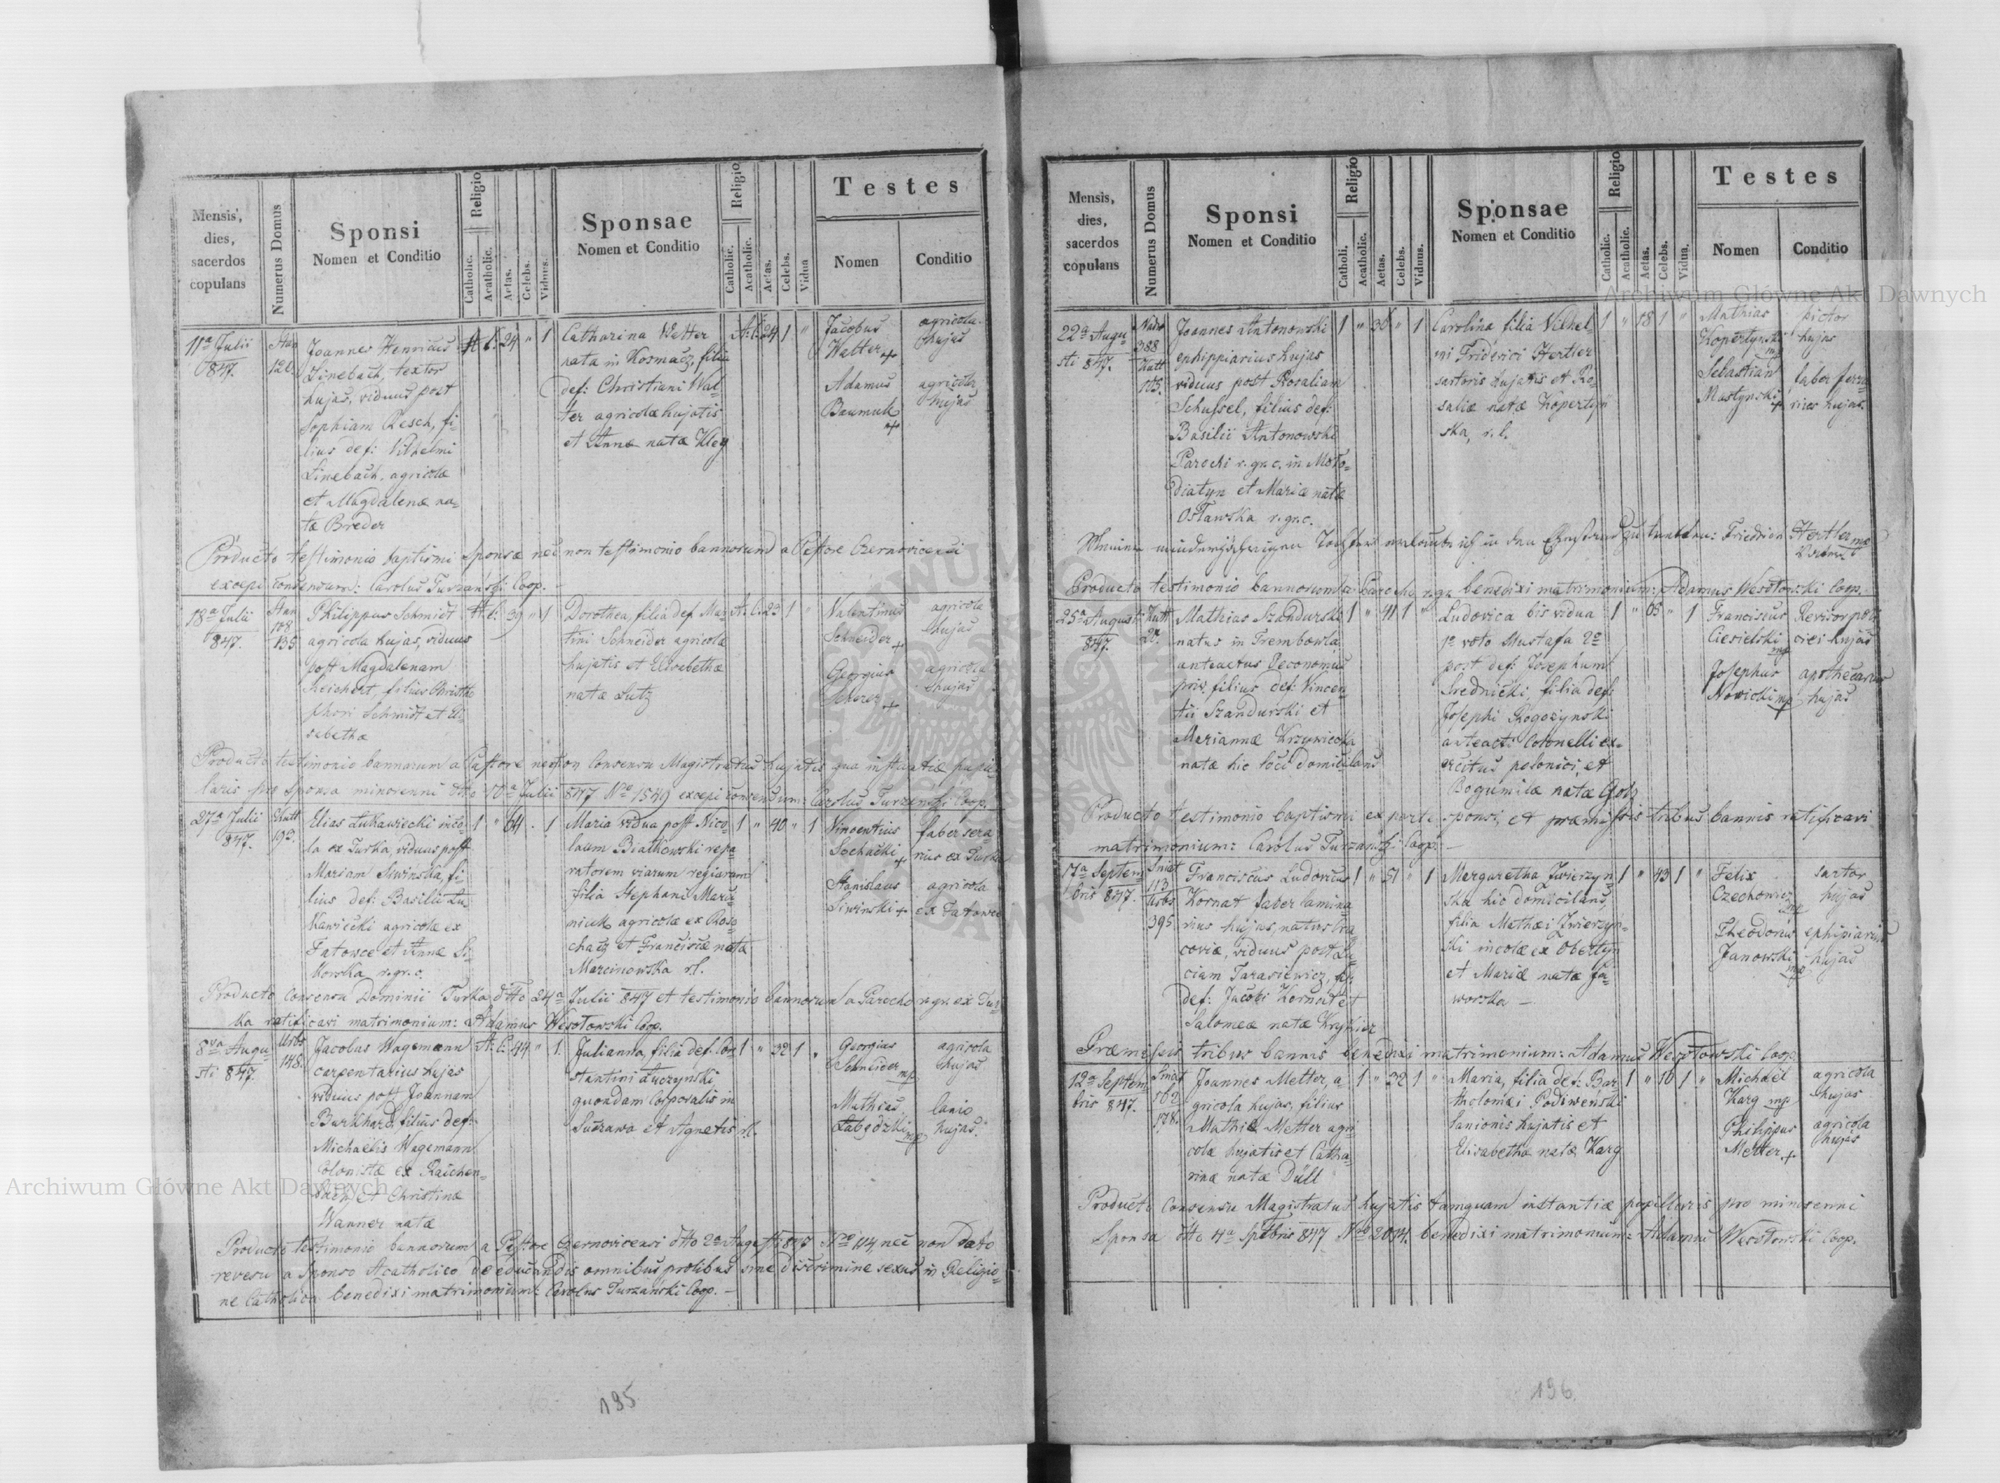 Mensis, dies, sacerdos copulans
Numerus Domus
Sponsi
Nomen et Conditio
Religio
Catholic.
Acatholic.
Aetas.
Celebs.
Viduus.
Sponsae
Nomen et Conditio
Religio
Catholic.
Acatholic.
Aetas.
Celebs.
Vidua
Testes
Nomen
Conditio
11a Julii
847.
120
Joannes Henricus
Linebach, textor
hujas, viduus post
Sophiam Resch, fi-
lius def: Vilhelmi
Linebach, agricolæ
et Magdalenæ na-
tæ Breder
A. C. 24 " 1
Catharina Walter
nata in Kosmacz, filia
def: Christiani Wal-
ter agricolæ hujatis
et Annæ natæ Kley
A. C. 24 1 "
Jacobus
Walter +
Adamus
+
agricola
hujas
agricola
hujas
Producto testimonio baptismi sponsæ nec non testimonio bannorum a Pastore Czernovicensi
excepi consensum: Carolus Turzański Coop.
18a Julii
847.
135
Philippus Schmidt
agricola hujas, viduus
post Magdalenam
Reichert filius Christo-
phori Schmidt et Eli-
sabethæ
A. C. 39 " 1
Dorothea, filia def. Mar-
tini Schneider agricolæ
hujatis et Elisabethæ
natæ Lutz
A. C. 23 1 "
Valentinus
Schneider +
Georgius
Scherer +
agricola
hujas
agricola
hujas
Producto testimonio bannorum a Pastore nec non Consensu Magistratus hujatis qua instantiæ pupil-
laris pro sponsa minorenni dtto 10a Julii 847 No 1549 excepi consensum: Carolus Turzański Coop.
27a Julii
847.
Kutt
Elias Łukawiecki inco-
la ex Turka, viduus post
Mariam Siwińska, fi-
lius def: Basilii Łu-
kawiecki agricolæ ex
Fatowce et Annæ Si-
kowska r. gr. c.
1 " 64 . 1
Maria vidua post Nico-
laum Białkowski repa-
ratorem viarum regiarum
filia Stephani Marci-
niuk agricolæ ex Roso-
chacz et Franciscæ natæ
Marcinowska r.l.
1 " 40 " 1
Vincentius
Sochacki +
Stanislaus
Siwinski +
faber sera-
rius ex Turka
agricola
ex Fatowce
Producto Consensu Dominii Turka dtto 24a Julii 847 et testimonio bannorum a Parocho r. gr. ex Tur-
ka ratificavi matrimonium: Adamus Wesołowski Coop.
8va Augu-
sti 847.
Urbs
148.
Jacobus Wagemann
carpentarius hujas
viduus post Joannam
Burkhard filius def:
Michaelis Wagemann
Colonistæ ex Raichen-
bach et Christinæ
Wanner natæ
A. C. 44 " 1.
Julianna, filia def. Con-
stantini Łuczynski,
quondam Corporalis in
Suczawa et Agnetis r.l.
1 " 32 1 "
Georgius
Schneider mp
Mathias
Łabędzki mp
agricola
hujas
lanio
hujas.
Producto testimonio bannorum a Pastore Czernovicensi dtto 2a Augusti 847 No 114, nec non dato
reversu a Sponso Acatholico de educandis omnibus prolibus sine discrimine sexus in Religio-
ne Catholica benedixi matrimonium: Carolus Turzański Coop.
195
Mensis, dies, sacerdos copulans
Numerus Domus
Sponsi
Nomen et Conditio
Religio
Catholi.
Acatholic.
Aetas.
Celebs.
Viduus.
Sponsae
Nomen et Conditio
Religio
Catholic.
Acatholic.
Aetas.
Celebs.
Vidua.
Testes
Nomen
Conditio
22a Augu-
sti 847.
388
Kutt
173.
Joannes Antonowski
ephippiarius hujas
viduus post Rosaliam
Schussel, filius def:
Basilii Antonowski
Parochi r. gr. c. in Moło-
diatyn et Mariæ natæ
Osławska, r. gr. c.
1 " 36 " 1
Carolina filia Vilhel-
mi Friderici Hertler
sartoris hujatis et Ro-
saliæ natæ Kopertyń-
ska, r. l.
1 " 18 1 "
Mathias
Kopertynski
mp
Sebastian
Mostynski +
pictor
hujas
faber ferra-
rius hujas.
Meiner minderjährigen Tochter erlaube ich in den Ehestand zu tretten: Friedrich Hertler mp
Vater
Producto testimonio bannorum a Parocho r. gr. benedixi matrimonium: Adamus Wesołowski Coop.
25a Augusti
847.
Kutt
27.
Mathias Szandurski
natus in Trembowla
anteactus Oeconomus
priv, filius def: Vincen-
tii Szandurski et
Mariannæ Krzywiecka
natæ hic loci domicilians
1 " 41 1 "
Ludovica bis vidua
1o voto Mustafa 2o
post def: Josephum
Srednicki, filia def:
Josephi Rogozynski
anteact: Colonelli ex-
ercitus polonici, et
Bogumilæ natæ Golz
1 " 65 " 1
Franciscus
Ciesielski
mp
Josephus
Nowicki mp
Revisor pot-
hujas
apothecarius
hujas
Producto testimonio baptismi ex parte sponsi, et præmissis tribus bannis ratificavi
matrimonium: Carolus Turzański Coop:
17a Septem-
bris 847.
Sniat
113
Urbs
395
Franciscus Ludovicus
Kornat faber lamina-
rius hujas, natus Cra-
coviæ, viduus post Lu-
ciam Tarasiewicz, fil:
def: Jacobi Kornat et
Salomeæ natæ Krygier
1 " 51 " 1
Margaretha Zwierzyn-
ska hic domicilians,
filia Mathæi Zwierzyn-
ski incolæ ex Obertyn
et Mariæ natæ Ja-
worska
1 " 43 1 "
Felix
Czechowicz
mp
Theodorus
Janowski
mp
sartor
hujas
ephipiarius
hujas
Præmissis tribus bannis benedixi matrimonium: Adamus Wesołowski Coop
12a Septem-
bris 847.
Sniat
162
178.
Joannes Metter, a-
gricola hujas, filius
Mathiæ Metter agri-
colæ hujatis et Catha-
rinæ natæ Düll
1 " 32 1 "
Maria, filia def: Bar-
tholomæi Podiwenski
lanionis hujatis et
Elisabetha natæ Karg
1 " 16 1 "
Michael
Karg mp
Philippus
Metter +
agricola
hujas
agricola
hujas
Producto Consensu Magistratus hujatis tamquam instantiæ pupillaris pro minorenni
Sponsa dtto 4a 7bris 847 No 2094. benedixi matrimonium: Adamus Wesołowski Coop.
196.
Archiwum Główne Akt Dawnych
Archiwum Główne Akt Dawnych